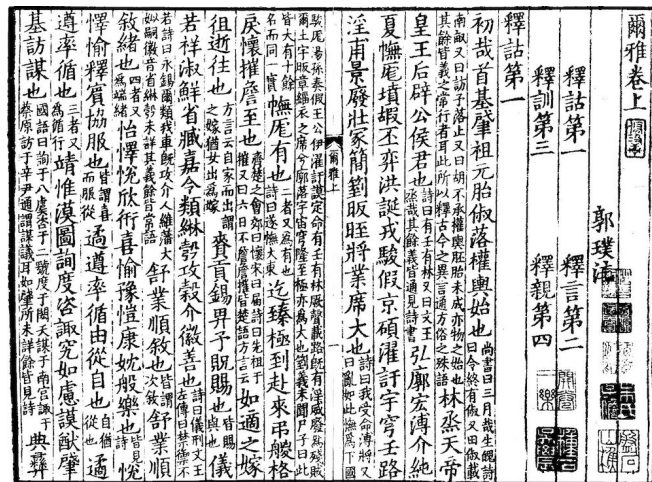 爾雅卷上
郭璞注
釋詁第一　釋言第二
釋訓第三　釋親第四
釋詁第一
初哉首基肇祖元胎俶落權輿始也尚書曰三月哉生魄詩曰令終有俶又曰俶載
南畝又曰訪予落止又曰胡不承權輿胚胎未成亦物之始也
其餘皆義之常行者耳此所以釋古今之異言通方俗之殊語林烝天帝
皇王后辟公侯君也詩曰有壬有林又曰文王
烝哉其餘義皆通見詩書弘廓宏溥介純
夏幠厖墳嘏丕弈洪誕戎駿假京碩濯訏宇穹壬路
淫甫景廢壯冢簡箌昄晊將業席大也詩曰我受命溥將又
曰亂如此幠為下國
駿厖湯孫奏假王公伊濯訏謨定命有壬有林厥聲載路既有淫威廢為殘賊
爾土宇昄章緇衣之席兮廓落宇宙穹隆至極亦為大也箌義未聞尸子曰此
皆大有十餘
名而同一實幠厖有也二者又為有也
詩曰遂幠大東迄臻極到赴來弔艐格
戾懷摧詹至也齊楚之會郊曰懷宋曰屆詩曰先祖于
摧又曰六日不詹詹摧皆楚語方言云如適之嫁
徂逝往也方言云自家而出謂
之嫁猶女出為嫁賚貢錫畀予貺賜也皆賜
與也儀
若祥淑鮮省臧嘉令類綝彀攻穀介徽善也詩曰儀刑文王
左傳曰禁禦不
若詩曰永錫爾類我車既攻介人維藩大
姒嗣徽音省綝彀未詳其義餘皆常語舒業順敘也皆謂
次敘舒業順
敘緒也四者又
為端緒怡懌悅欣衎喜愉豫愷康妉般樂也皆見
詩悅
懌愉釋賓協服也皆謂喜
而服從遹遵率循由從自也自猶
從也遹
遵率循也三者又
為循行靖惟漠圖詢度咨諏究如慮謨猷肇
基訪謀也國語曰詢于八虞咨于二虢度于閎夭謀于南宮諏于
蔡原訪于辛尹通謂謀議耳如肇所未詳餘皆見詩典彝
爾雅上
一